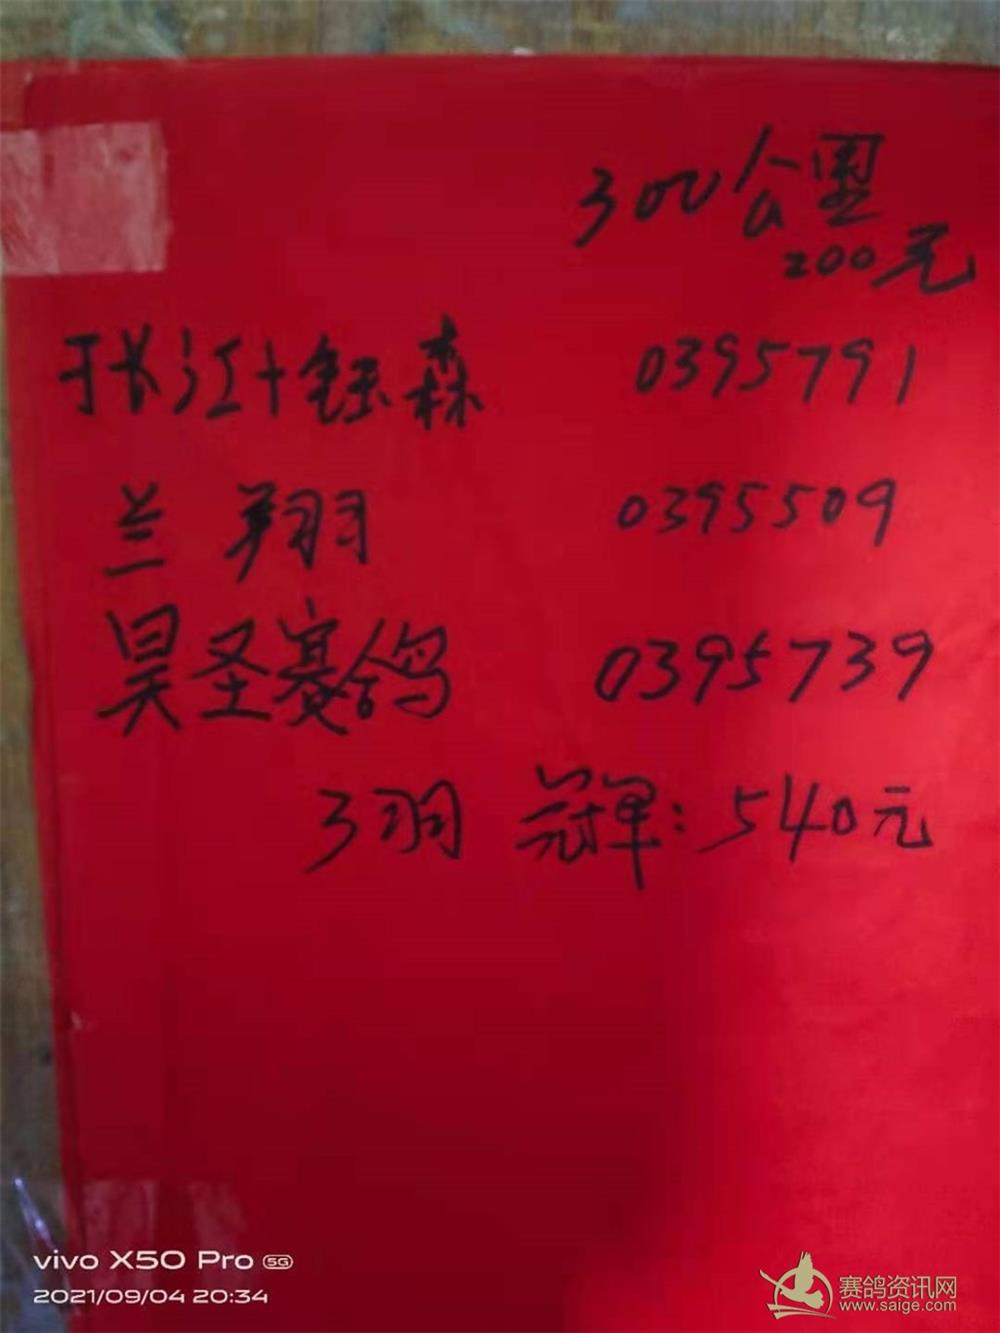 300公里
200元
于长江+钰森 0395791
兰翔 0395509
昊圣赛鸽 0395739
3羽 冠军:540元
vivo X50 Pro 5G
2021/09/04 20:34
赛鸽资讯网
www.saige.com